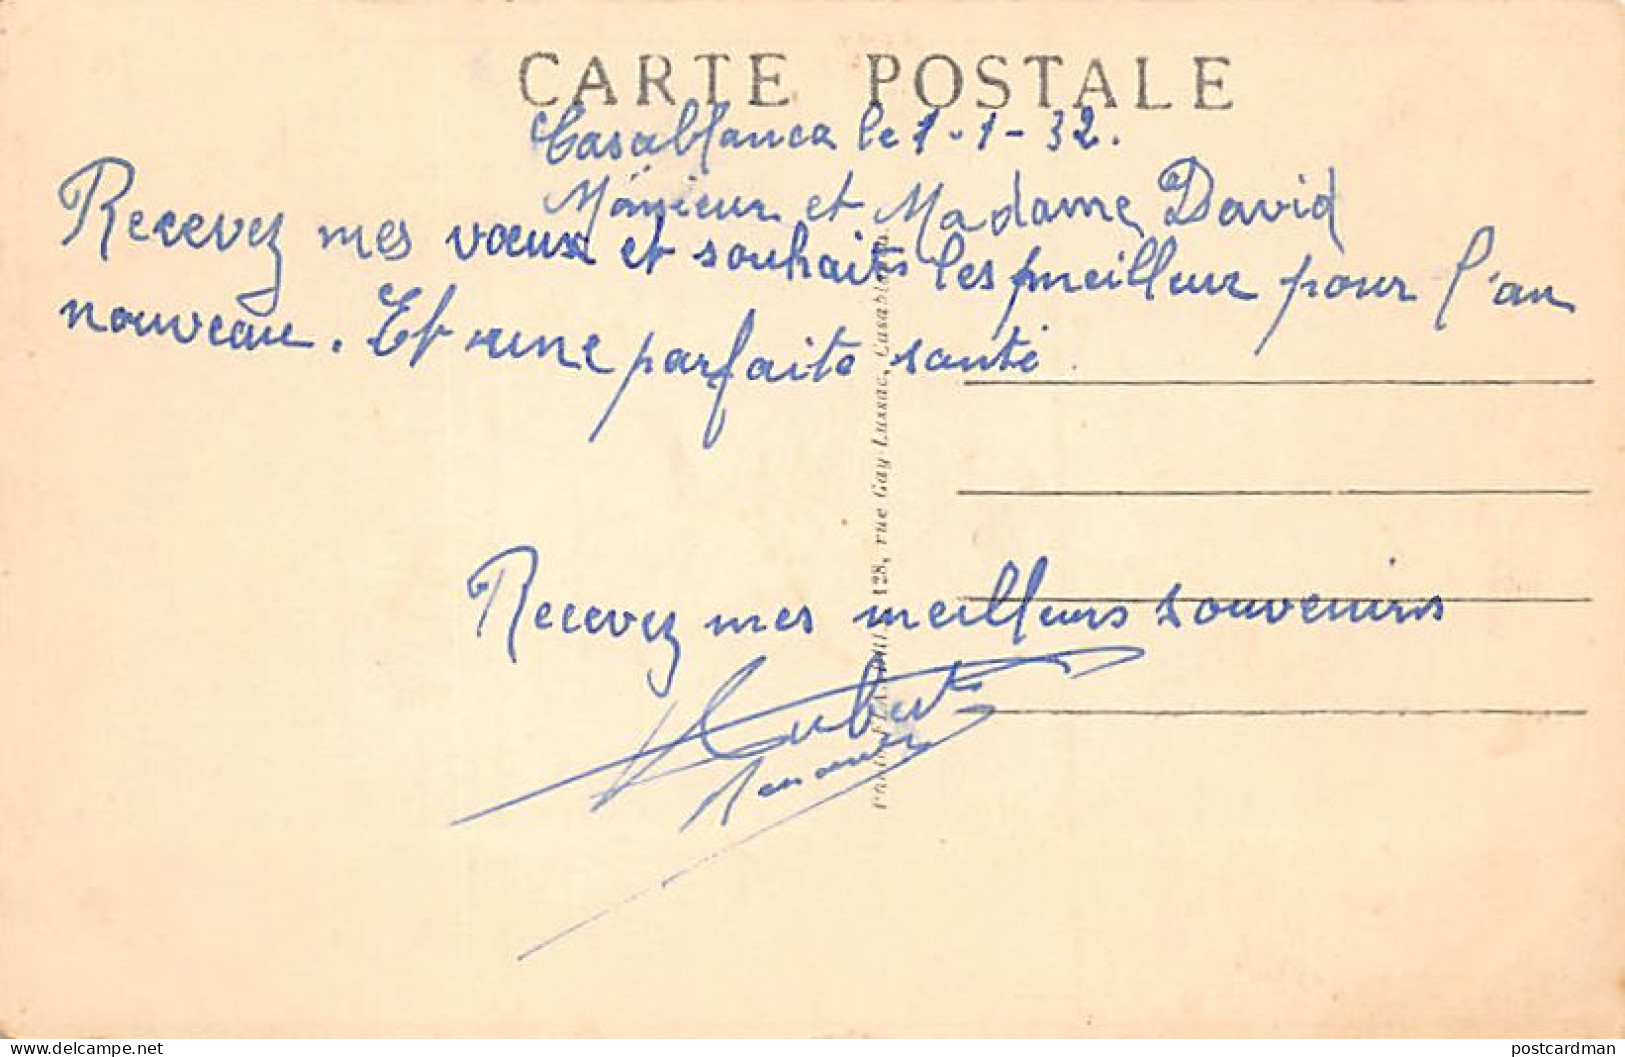 CARTE POSTALE
Casablanca le 1-1-32.
Monsieur et Madame David
Recevez mes vœux et souhaits les meilleur pour l'an
nouveau. Et une parfaite santé.
128, rue Gay-Lussac, Casablanca
Recevez mes meilleurs souvenirs
Hubert
www.delcampe.net
postcardman